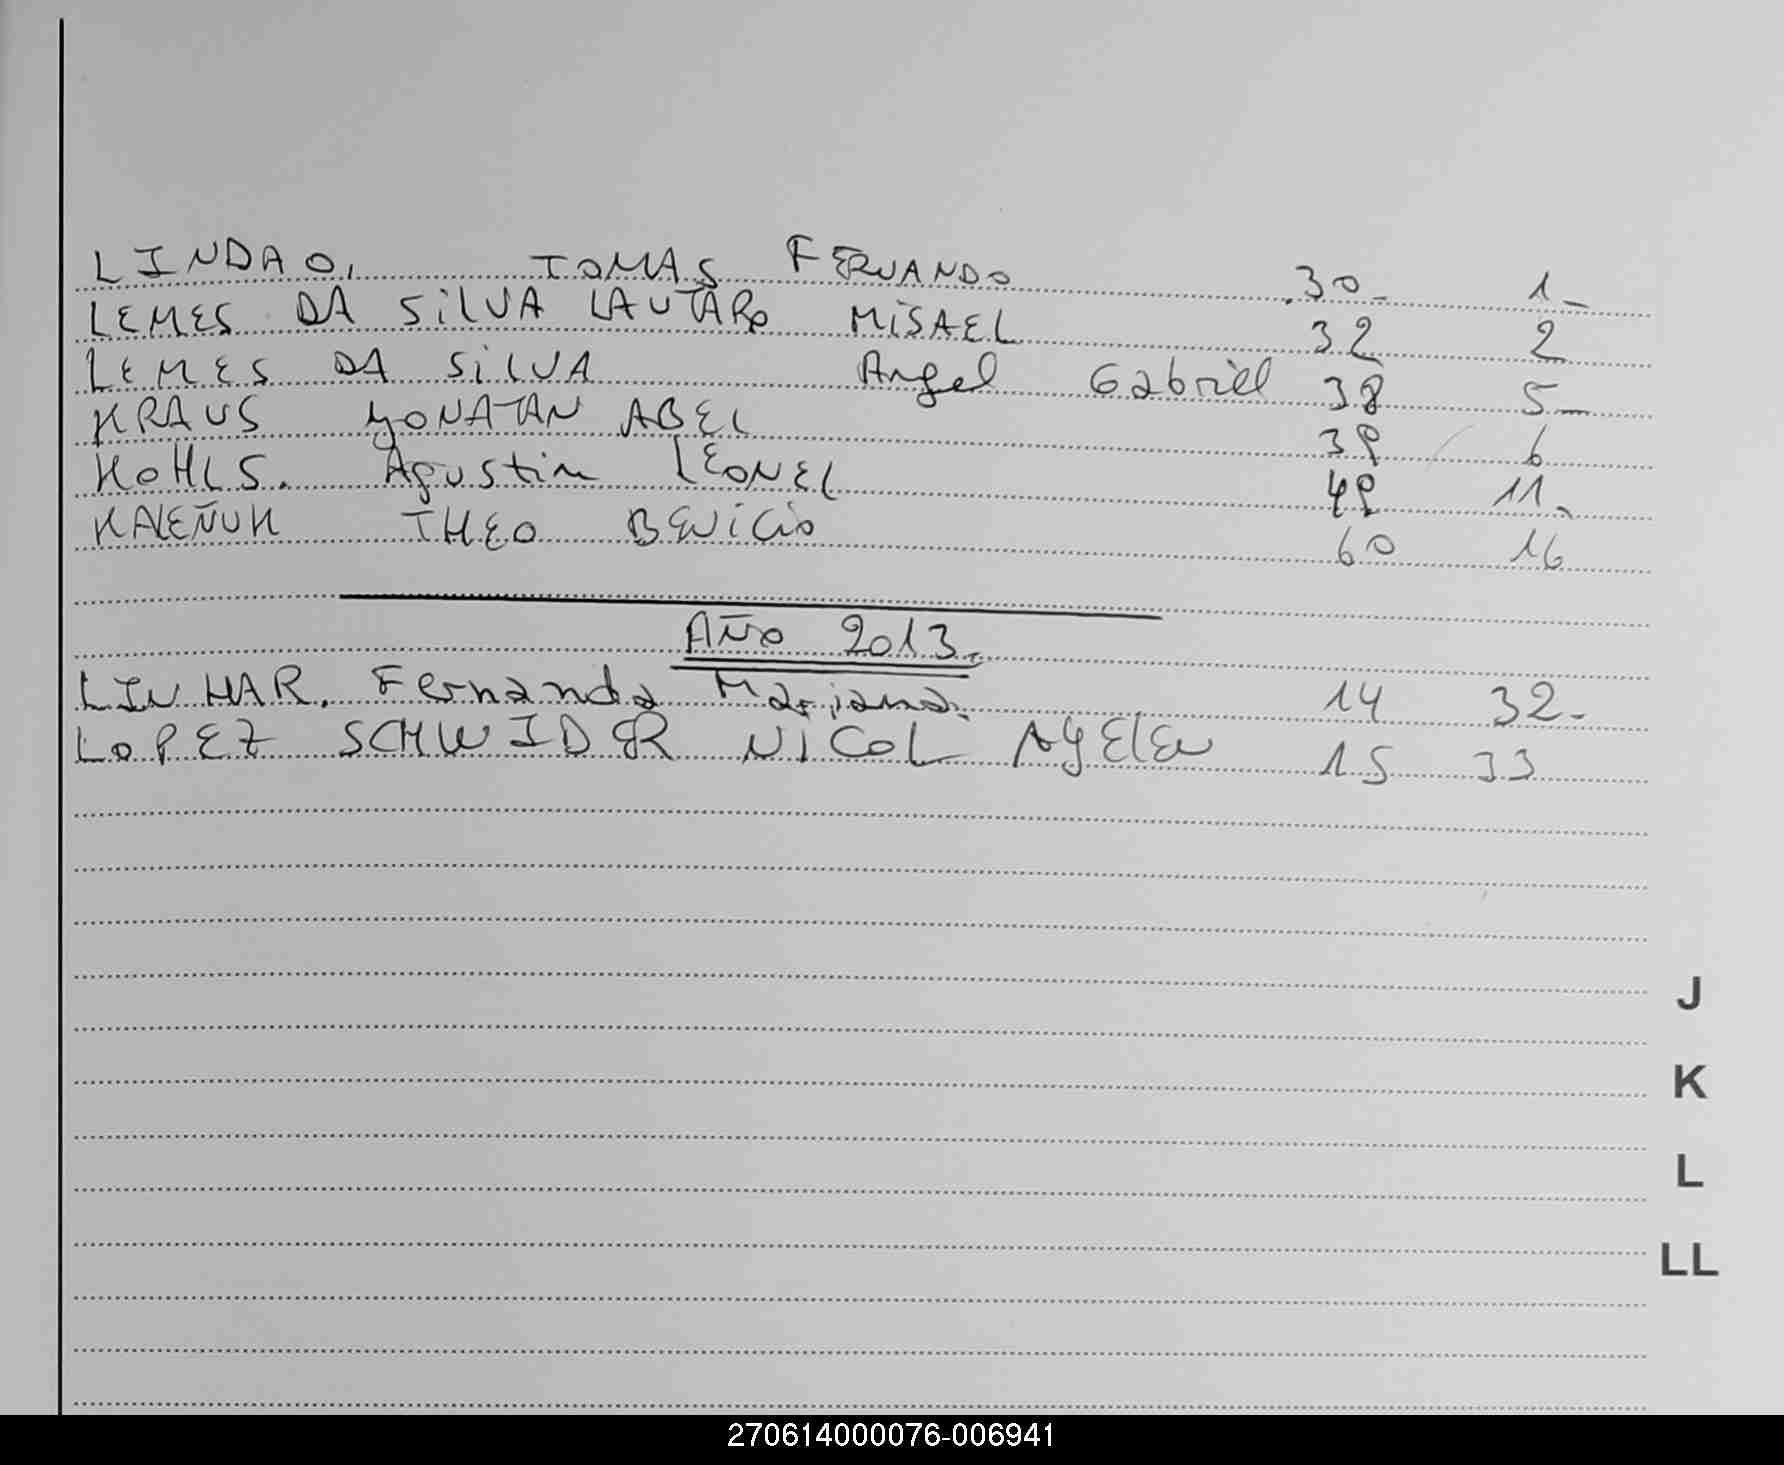 LINDAO, TOMAS FERNANDO 30- 1-
LEMES DA SILVA LAUTARO MISAEL 32 2
LEMES DA SILVA Angel Gabriel 38 5-
KRAUS YONATAN ABEL 39 6
KOHLS. Agustin LEONEL 49 11-
KALEÑUK THEO BENICIO 60 16
AÑO 2013.
LINHAR. Fernanda Mariana. 14 32-
LOPEZ SCHWIDER NICOL AYELEN 15 33
J
K
L
LL
270614000076-006941